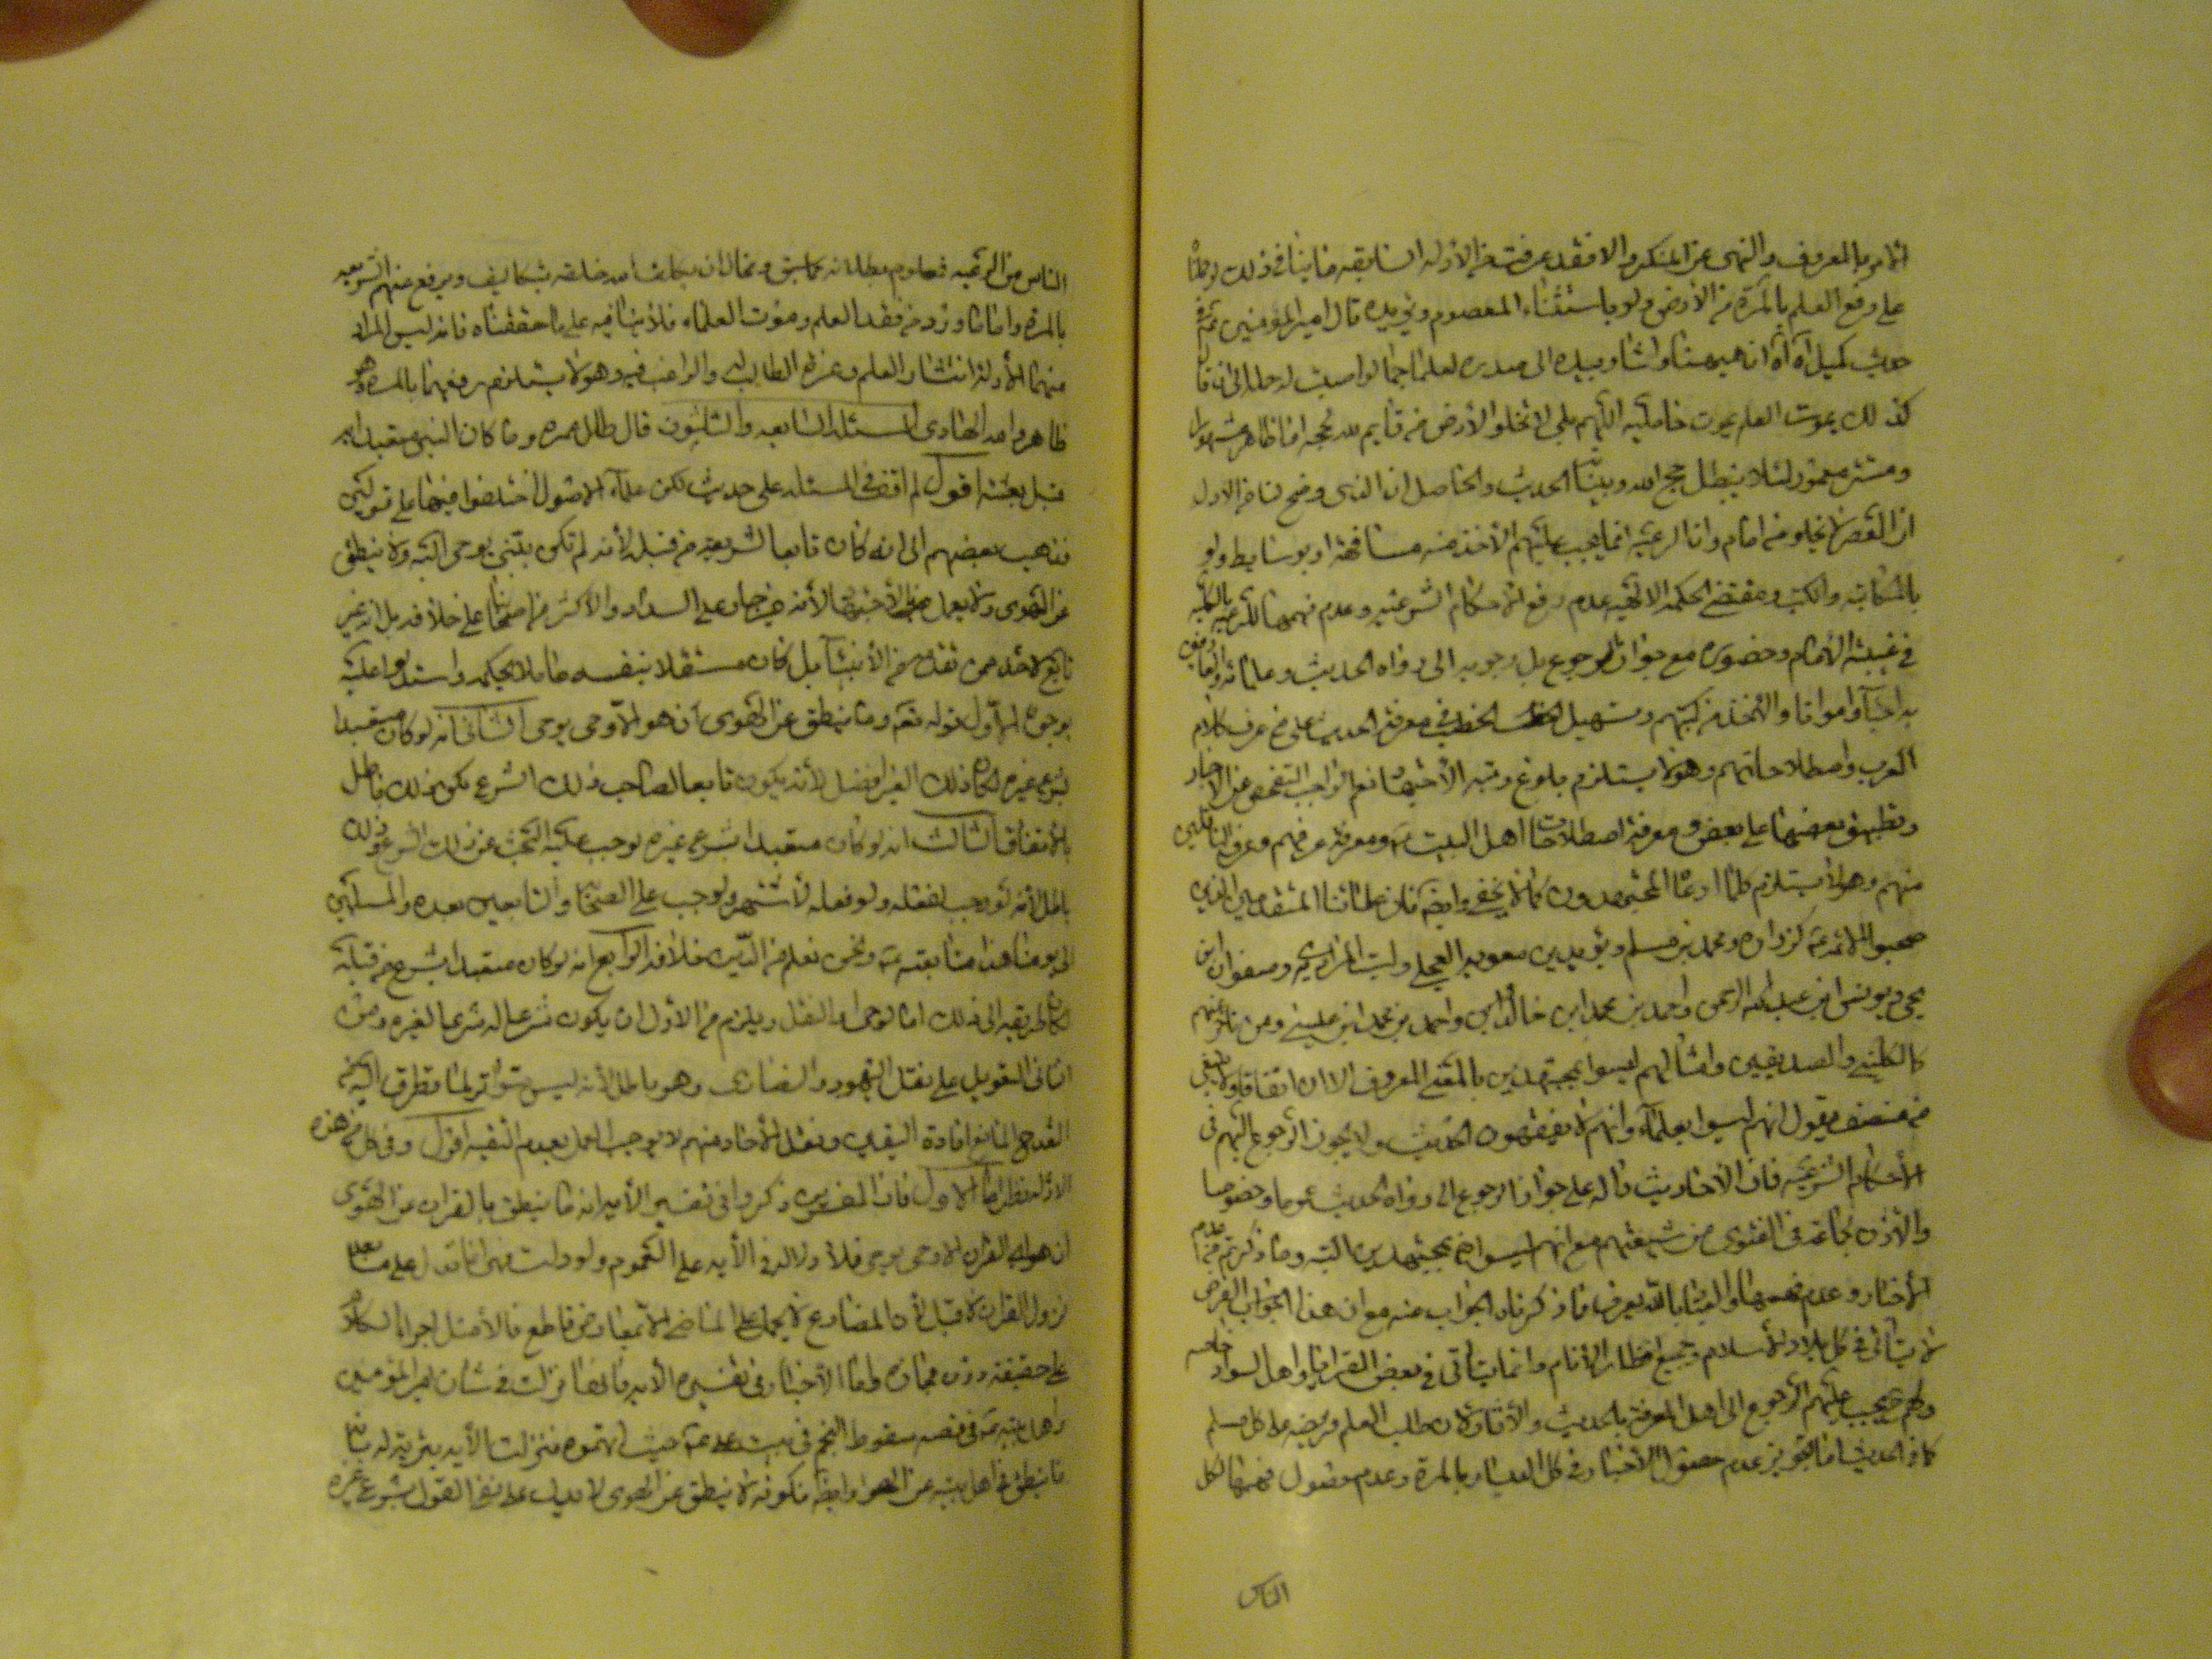 الامر بالمعروف والنهى عن المنكر والا فقد عرفت من الادلة السابقة ما ينافى ذلك
على رفع العلم بالمرة من الارض ولو باستثناء المعصوم ويؤيده قال امير المؤمنين
حديث كميل آه آه ان هيهنا واشار بيده الى صدره لعلما جما لو اصبت له حملة الى ان قا
كذلك يموت العلم بموت حامليه اللهم بلى لا تخلو الارض من قايم لله بحجة اما ظاهر مشهور
ومستتر مغمور لئلا يبطل حجج الله وبيناته الحديث والحاصل ان الذى وضح لنا من الاول
ان العصر لا يخلو من امام وان الرعية انما يجب عليهم الاخذ منه مشافهة او بوسايط ولو
بالمكاتبة والكتب ومقتضى الحكمة الالهية عدم رفع الاحكام الشرعية وعدم فهمها للرعية بالكلية
فى غيبة الامام وحضوره مع جواز الرجوع بل وجوبه الى رواة الحديث
احياء وامواتا والاخذ من كتبهم وتسهيل الخطب فى معرفة الحديث على من عرف كلام
العرب واصطلاحاتهم وهو لا يستلزم بلوغ رتبة الاجتهاد نعم الواجب التفحص عن الاخبار
وتطبيق بعضها على بعض ومعرفة اصطلاحات اهل البيت ومعرفة عرفهم وعرف الناقلين
منهم وهو لا يستلزم كلما ادعاه المجتهدون كما لا يخفى وايضا فان علمائنا المتقدمين الذين
صحبوا الائمة كزرارة ومحمد بن مسلم وبريد بن معوية العجلى وليث المرادى وصفوان ابن
يحيى ويونس ابن عبد الرحمن واحمد بن محمد ابن خالد واحمد بن محمد ابن عيسى ومن تاخر عنهم
كالكلينى والصدوقين وامثالهم ليسوا بمجتهدين بالمعنى المعروف الان اتفاقا ولا ينبغى
من منصف يقول انهم ليسوا بعلماء وانهم لا يفقهون الحديث ولا يجوز الرجوع اليهم فى
الاحكام الشرعية فان الاحاديث دالة على جواز الرجوع الى رواة الحديث عموما وخصوصا
والاذن لجماعة فى الفتوى من شيعتهم مع انهم ليسوا بمجتهدين البتة وما ذكرتم من عدم
الاخبار وعدم فهمها والعياذ بالله يعرف مما ذكرناه الجواب عنه مع ان هذا الجواب الفرض
لا يتأتى فى كل بلاد الاسلام وجميع اقطار الانام وانما يتأتى فى بعض القرايا واهل السواد خاصة
ولهم يجب عليهم الرجوع الى اهل المعرفة بالحديث والاثار لان طلب العلم فريضة على كل مسلم
كما فى الحديث اما تجويز عدم حصول الاخبار فى كل الديار بالمرة وعدم حصول فهمها لكل
الناس
الناس من الرعية فمعلوم بطلانه مما سبق ومحال ان يكلف الله خلقه بتكاليف ويرفع عنهم الشريعة
بالمرة واما ما ورد من فقد العلم وموت العلماء فلا ينافيه على ما حققناه فانه ليس المراد
منهما الا قلة انتشار العلم وعزة الطالب والراغب فيه وهو لا يستلزم رفعهما بالمرة وهو
ظاهر والله الهادى المسئلة السابعة والثلثون قال طال عمره وما كان النبى متعبدا به
قبل بعثته اقول لم اقف فى المسئلة على حديث لكن علماء الاصول اختلفوا فيها على قولين
فذهب بعضهم الى انه كان تابعا لشريعة من قبله لانه لم تكن بنبى يوحى اليه ولا ينطق
عن الهوى ولا يعمل بالاجتهاد والاكثر من اصحابنا على خلافه بل انه غير
تابع لاحد ممن تقدمه من الانبياء بل كان مستقلا بنفسه عاملا بحكمه واستدلوا عليه
بوجوه الاول قوله تعالى وما ينطق عن الهوى ان هو الا وحى يوحى الثانى انه لو كان متعبدا
بشرع غيره لكان ذلك الغير افضل لانه يكون تابعا لصاحب ذلك الشرع لكن ذلك باطل
بالاتفاق الثالث انه لو كان متعبدا بشرع غيره لوجب عليه البحث عن ذلك الشرع وذلك
باطل لانه لو وجب لفعله ولو فعله لاشتهر ولوجب على الصحابة والتابعين بعده والمسلمين
الى يومنا هذا متابعته ونحن نعلم من الدين خلافه الرابع انه لو كان متعبدا بشرع من قبله
لكان طريقه الى ذلك اما لوحى او النقل ويلزم من الاول ان يكون شرعا له شرعا لغيره ومن
الثانى التعويل على نقل اليهود والنصارى وهو باطل لانه ليس بمتواتر لما تطرق اليه من
القدح المانع افادة اليقين ونقل الاحاد منهم لا يوجب العمل بعدم الثقة اقول وفى كل من هذه
الادلة نظر اما الاول فان المفسرين ذكروا فى تفسير الاية انه ما ينطق بالقران عن الهوى
ان هو اى القران الا وحى يوحى فلا دلالة فى الاية على العموم ولو دلت فهى انما تدل على ما بعد
نزول القران لا قبل لان المضارع لا يحمل على الماضى الا بمعارض قاطع فالاصل اجراء الكلام
على حقيقته دون مجازه واما الاخبار فى تفسير الاية فانها نزلت فى شان امير المؤمنين
واهل بيته فى قصة سقوط النجم فى بيت على حيث اتهموه فنزلت الاية بتبرئته له بانه
ما ينطق فى اهل بيته عن الهوى وايضا فكونه لا ينطق عن الهوى لا يدل على نفى القول بشرع غيره